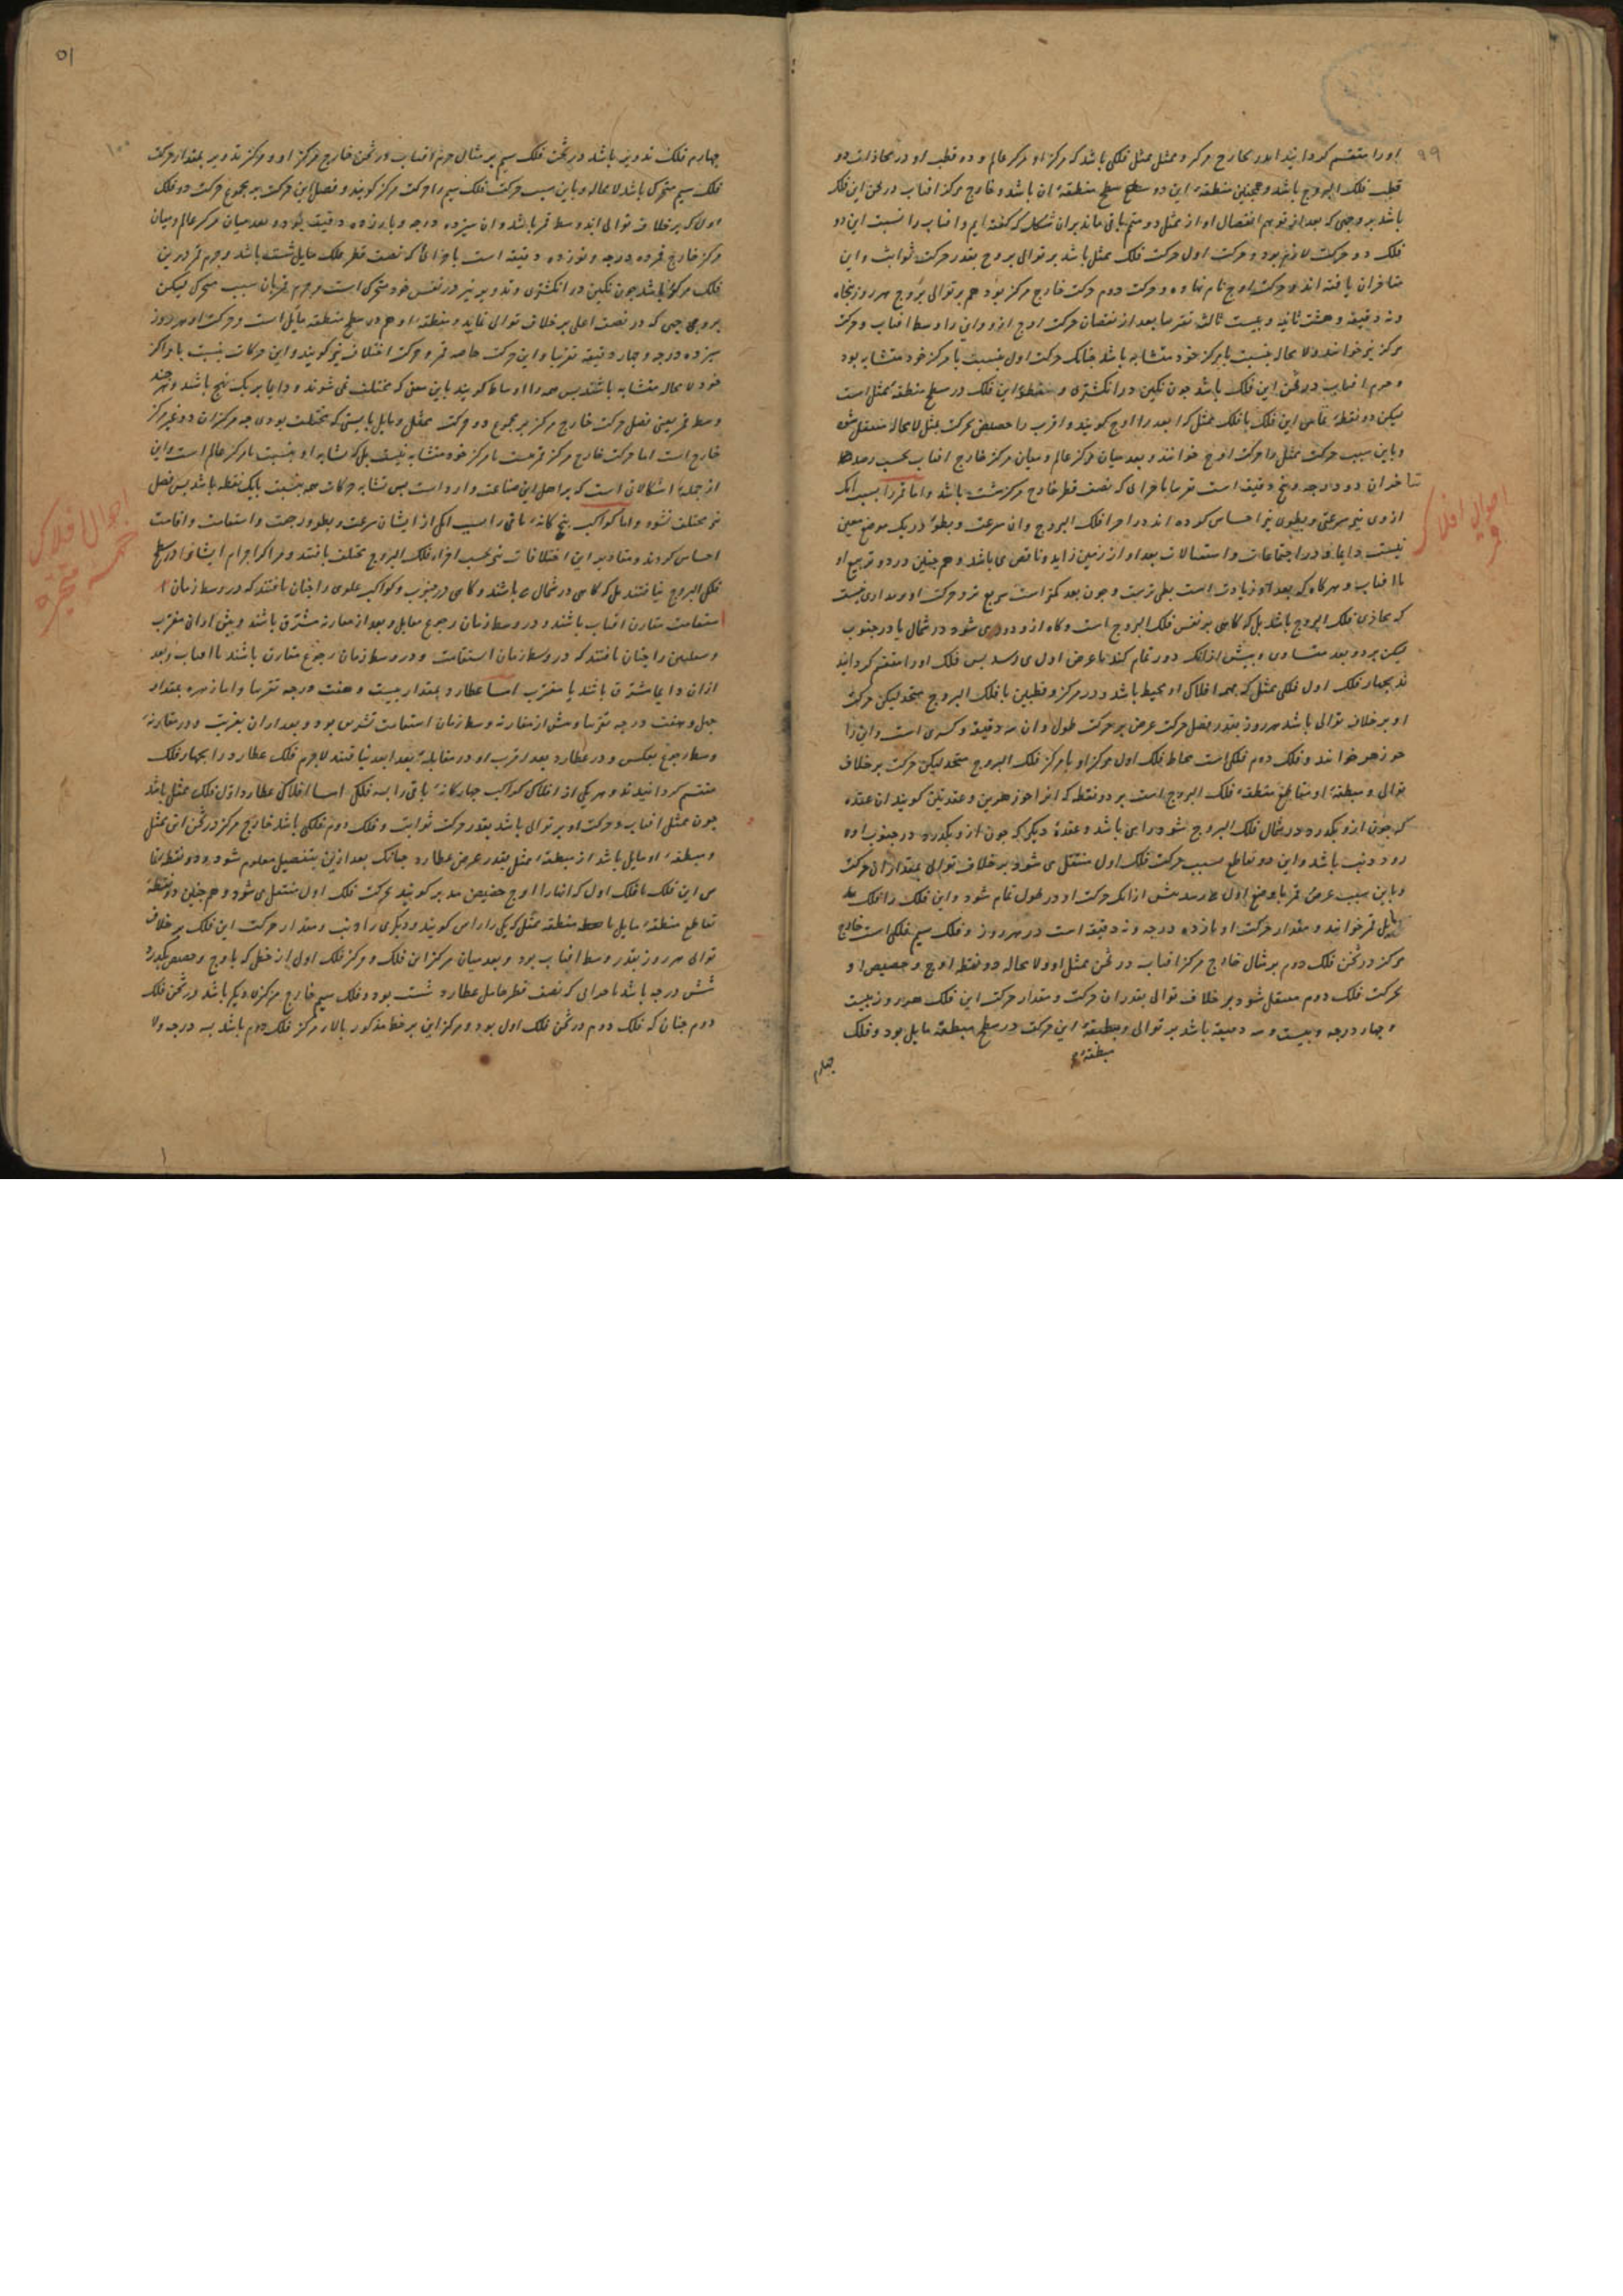 ۹۹
او را منقسم کردانیده‌اند بخارج مرکز و ممثل ممثل فلکی باشد که مرکز او مرکز عالم و دو قطب او در محاذات دو
قطب فلک البروج باشد و همچنین منطقهٔ این در سطح منطقهٔ آن باشد و خارج مرکز افتاب در ثخن این فلک
باشد بر وجهی که بعد از توهم انفصال او از ممثل دو متمم باقی ماند بر آن شکل که گفته ایم و افتاب را نسبت این دو
فلک دو حرکت لازم بود و حرکت اول حرکت فلک ممثل باشد بر توالی بروج بقدر حرکت ثوابت و این
متاخران یافته اند و حرکت اوج نام نهاده و حرکت دوم حرکت خارج مرکز بود هم بر توالی بروج هر روز پنجاه
ونه دقیقه و هشت ثانیه و بیست ثالثه تقریبا بعد از نقصان حرکت اوج ازو و این را وسط افتاب و حرکت
مرکز نیز خوانند ولا محاله بنسبت با مرکز خود متشابه باشد چنانک حرکت اول بنسبت با مرکز خود متشابه بود
و جرم افتاب در ثخن این فلک باشد چون نکین در انکشتری و منطقهٔ این فلک در سطح منطقهٔ ممثل است
لیکن دو نقطهٔ تماس این فلک با فلک ممثل که ابعد را اوج کویند و اقرب را حضیض بحرکت ممثل لا محاله منتقل شود
و باین سبب حرکت ممثل را حرکت اوج خوانند و بعد میان مرکز عالم و میان مرکز خارج افتاب بحسب رصدها
متاخران دو درجه و پنج دقیقه است تقریبا باجزای که نصف قطر خارج مرکز شصت باشد و اما قمر را بسبب انک
ازوی نیز سرعتی و بطوی نیز احساس کرده اند در اجزا فلک البروج و آن سرعت و بطو در یک موضع معین
نیست دایما در اجتماعات و استقبالات بعد او از زمین زاید و ناقص می باشد و هم چنین در دو تربیع او
با افتاب و هرگاه که بعد او زیادت است بطی ترست و چون بعد کمتر است سریع تر و حرکت او بر مداری نیست
که محاذی فلک البروج باشد بل که کاهی بر نفس فلک البروج است و کاه ازو دور می شود در شمال یا در جنوب
لیکن بر دو بعد متساوی و پیش از انک دور تمام کند با عرض اول می رسد پس فلک او را منقسم کردانیده
اند بچهار فلک اول فلکی ممثل که بهمه افلاک او محیط باشد و در مرکز و قطبین با فلک البروج متحد لیکن حرکت
او بر خلاف توالی باشد هر روز بقدر فضل حرکت عرض بر حرکت طول و آن سه دقیقه و کسری است و این را
جوزهر خوانند و فلک دوم فلکی است محاط فلک اول مرکز او با مرکز فلک البروج متحد لیکن حرکت بر خلاف
توالی و منطقهٔ او مقاطع منطقهٔ فلک البروج است بر دو نقطه که انرا جوزهرین و عقدتین کویند آن عقده
که چون ازو بگذرد در شمال فلک البروج شود راس باشد و عقدهٔ دیگر که چون ازو بگذرد در جنوب او
رود ذنب باشد و این دو تقاطع بسبب حرکت فلک اول منتقل می شود بر خلاف توالی بمقدار آن حرکت
و باین سبب عرض قمر با وضع اول رسد پیش از انک حرکت او در طول تمام شود و این فلک را فلک
مایل قمر خوانند و مقدار حرکت او یازده درجه و نه دقیقه است در هر روز و فلک سیم فلکی است خارج
مرکز در ثخن فلک دوم بر مثال خارج مرکز افتاب در ثخن ممثل او و لا محاله دو نقطه اوج و حضیض او
بحرکت فلک دوم منتقل شود بر خلاف توالی بقدر آن حرکت و مقدار حرکت این فلک هر روز بیست
و چهار درجه و بیست و سه دقیقه باشد بر توالی و منطقهٔ این حرکت در سطح منطقهٔ مایل بود و فلک
منطقهٔ
چهارم
احوال افلاک
قمر
۵۱
۱۰۰
چهارم فلک تدویر باشد در ثخن فلک سیم بر مثال جرم افتاب در ثخن خارج مرکز او و مرکز تدویر بمقدار حرکت
فلک سیم متحرک باشد لا محاله و باین سبب حرکت فلک سیم را حرکت مرکز کویند و فضل این حرکت بر مجموع حرکت دو فلک
اول که بر خلاف توالی اند وسط قمر باشد و آن سیزده درجه و یازده دقیقه بود و بعد میان مرکز عالم و میان
مرکز خارج قمر ده درجه و نوزده دقیقه است باجزائی که نصف قطر فلک مایل شصت باشد و جرم قمر درین
فلک مرکوز باشد چون نکین در انکشتری و تدویر نیز در نفس خود متحرک است و جرم قمر بآن سبب متحرک لیکن
بر وجهی که در نصف اعلی بر خلاف توالی نماید و منطقهٔ او هم در سطح منطقه مایل است و حرکت او هر روز
سیزده درجه و چهار دقیقه تقریبا و این حرکت خاصه قمر و حرکت اختلاف نیز کویند و این حرکات بنسبت با مراکز
خود لا محاله متشابه باشند پس همه را اوساط کویند باین معنی که مختلف نمی شوند و دایما بر یک نهج باشد و هر چند
وسط قمر یعنی فضل حرکت خارج مرکز بر مجموع دو حرکت ممثل و مایل بایستی که مختلف بودی چه مرکز آن دو غیر مرکز
خارج است اما حرکت خارج مرکز قمر نسبت با مرکز خود متشابه نیست بل که تشابه او بنسبت با مرکز عالم است و این
از جملهٔ اشکالات است که بر اهل این صناعت وارد است پس تشابه حرکات همه بنسبت با یک نقطه باشد پس فضل
نیز مختلف نشود و اما کواکب پنج کانهٔ باقی را بسبب انک از ایشان سرعت و بطو و رجعت و استقامت و اقامت
احساس کردند و مقادیر این اختلافات نیز بحسب اجزاء فلک البروج مختلف یافتند و مراکز اجرام ایشانرا در سطح
فلک البروج نیافتند بل که کاهی در شمال باشند و کاهی در جنوب و کواکب علوی را چنان یافتند که در وسط زمان
استقامت مقارن افتاب باشند و در وسط زمان رجوع مقابل و بعد از مقارنه مشرق باشند و پیش از آن مغرب
و سفلیین را چنان یافتند که در وسط زمان استقامت و در وسط زمان رجوع مقارن باشند با افتاب و بعد
از آن دایما مشرق باشند یا مغرب اما عطارد بمقدار بیست و هفت درجه تقریبا و اما زهره بمقدار
چهل و هفت درجه تقریبا و پیش از مقارنه وسط زمان استقامت تشریق بود و بعد از آن تغریب و در مقارنهٔ
وسط رجوع بعکس و در عطارد بعد اقرب او در مقابلهٔ بعد ابعد نیافتند لاجرم فلک عطارد را بچهار فلک
منقسم کردانیدند و هر یکی از افلاک کواکب چهارکانهٔ باقی را بسه فلک اما افلاک عطارد اول فلک ممثل باشد
چون ممثل افتاب و حرکت او بر توالی باشد بقدر حرکت ثوابت و فلک دوم فلکی باشد خارج مرکز در ثخن این ممثل
و منطقهٔ او مایل باشد از منطقهٔ ممثل بقدر عرض عطارد چنانک بعد ازین بتفصیل معلوم شود و دو نقطه تما
س این فلک با فلک اول که انها را اوج حضیض مدیر کویند بحرکت فلک اول منتقل می شود و هم چنین دو نقطهٔ
تقاطع منطقهٔ مایل با منطقه ممثل که یکی را راس کویند و دیکری را ذنب و مقدار حرکت این فلک بر خلاف
توالی هر روز بقدر وسط افتاب بود و بعد میان مرکز این فلک و مرکز فلک اول از خطی که باوج و حضیض بگذرد
شش درجه باشد باجزائی که نصف قطر حامل عطارد شصت بود و فلک سیم خارج مرکزی دیکر باشد در ثخن فلک
دوم چنان که فلک دوم در ثخن فلک اول بود و مرکز این بر خط مذکور بالای مرکز فلک دوم باشد بسه درجه ولا
احوال افلاک
خمسه متحیره